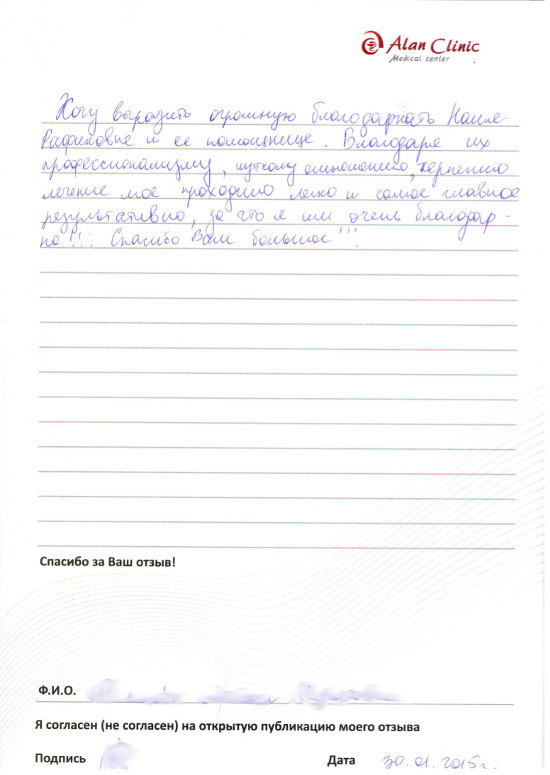 Alan Clinic
Medical center
Хочу выразить огромную благодарность Наиле
Рафиковне и ее помощнице. Благодаря их
профессионализму, чуткому отношению, терпению
лечение мое проходило легко и самое главное
результативно, за что я им очень благодар-
на!!! Спасибо Вам большое!!!
Спасибо за Ваш отзыв!
Ф.И.О.
Я согласен (не согласен) на открытую публикацию моего отзыва
Подпись
Дата 30.01.2015г.